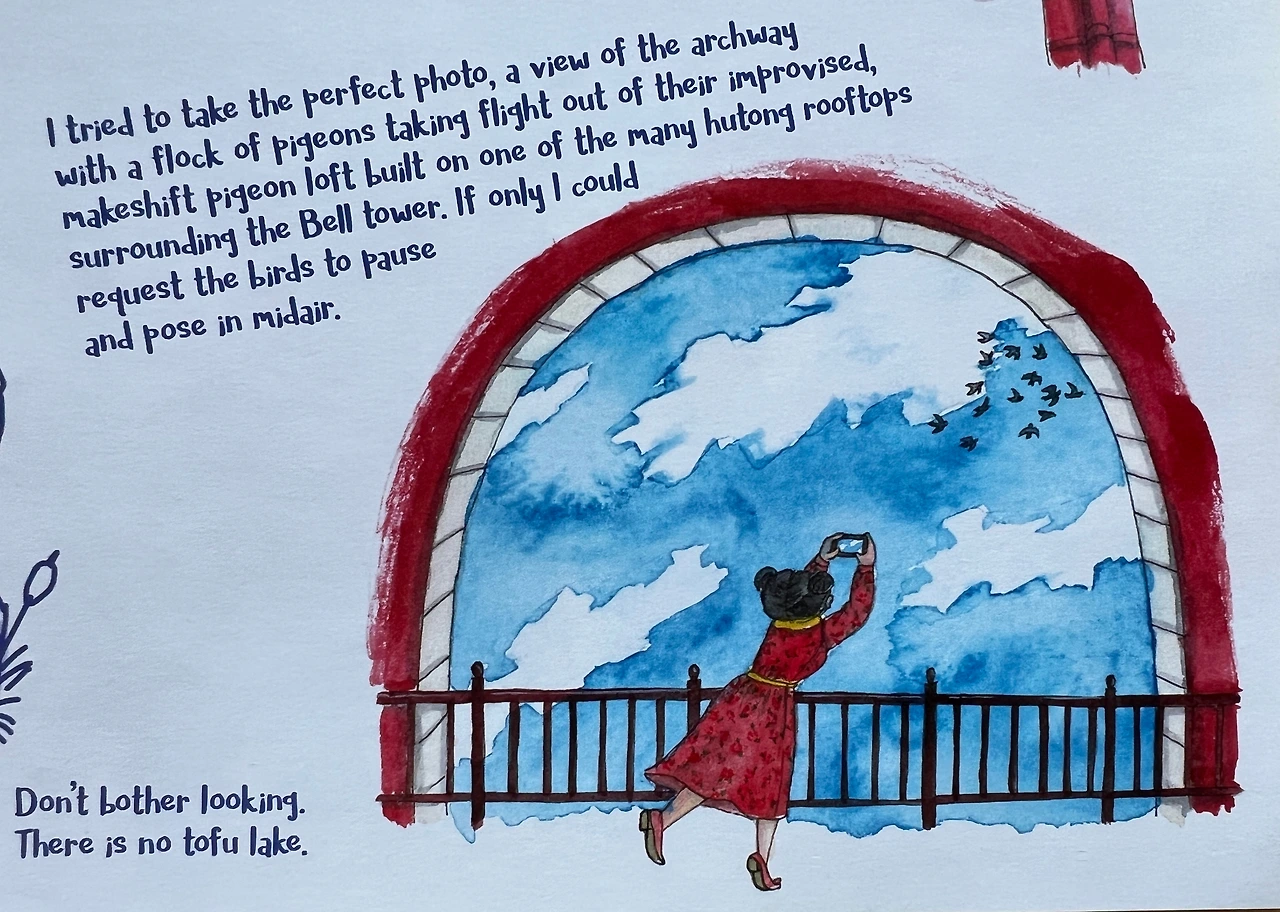 I tried to take the perfect photo, a view of the archway
with a flock of pigeons taking flight out of their improvised,
makeshift pigeon loft built on one of the many hutong rooftops
surrounding the Bell tower. If only I could
request the birds to pause
and pose in midair.
Don't bother looking.
There is no tofu lake.